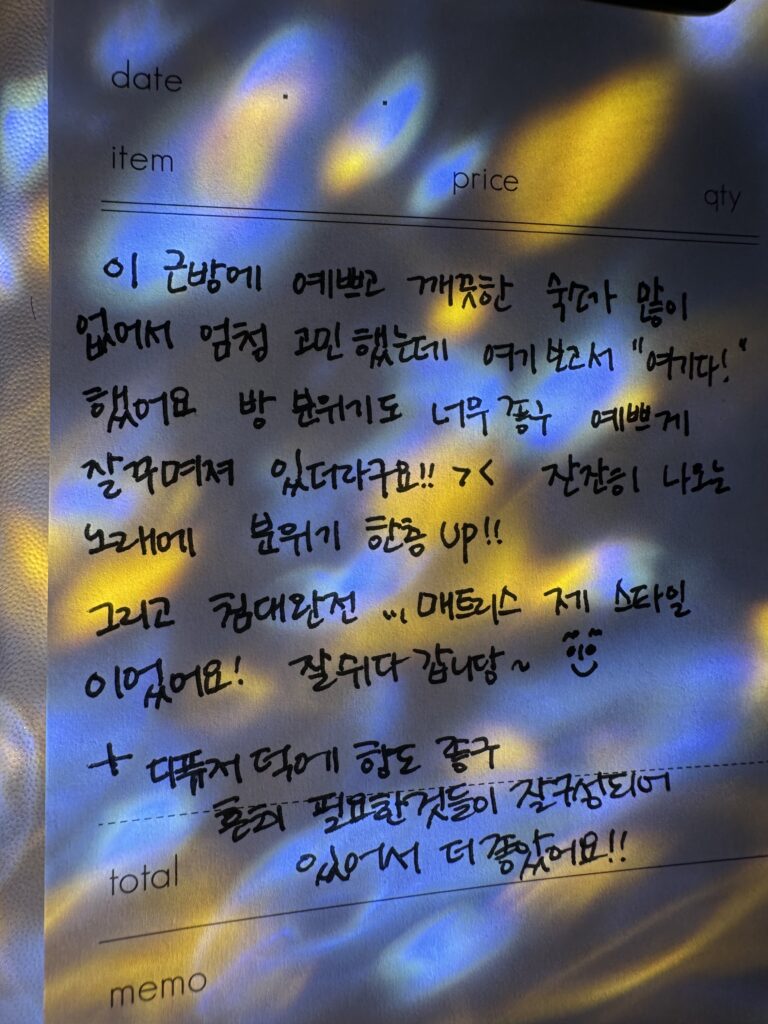 date . .
item price qty
이 근방에 예쁘고 깨끗한 숙소가 많이
없어서 엄청 고민했는데 여기보고서 "여기다!"
했어요 방 분위기도 너무 좋구 예쁘게
잘꾸며져 있더라구요!! > < 잔잔히 나오는
노래에 분위기 한층 up!!
그리고 침대완전 ... 매트리스 제 스타일
이었어요! 잘쉬다 갑니당~
+ 디퓨저 덕에 향도 좋구
흔히 필요한것들이 잘구성되어
있어서 더 좋았어요!!
total
memo